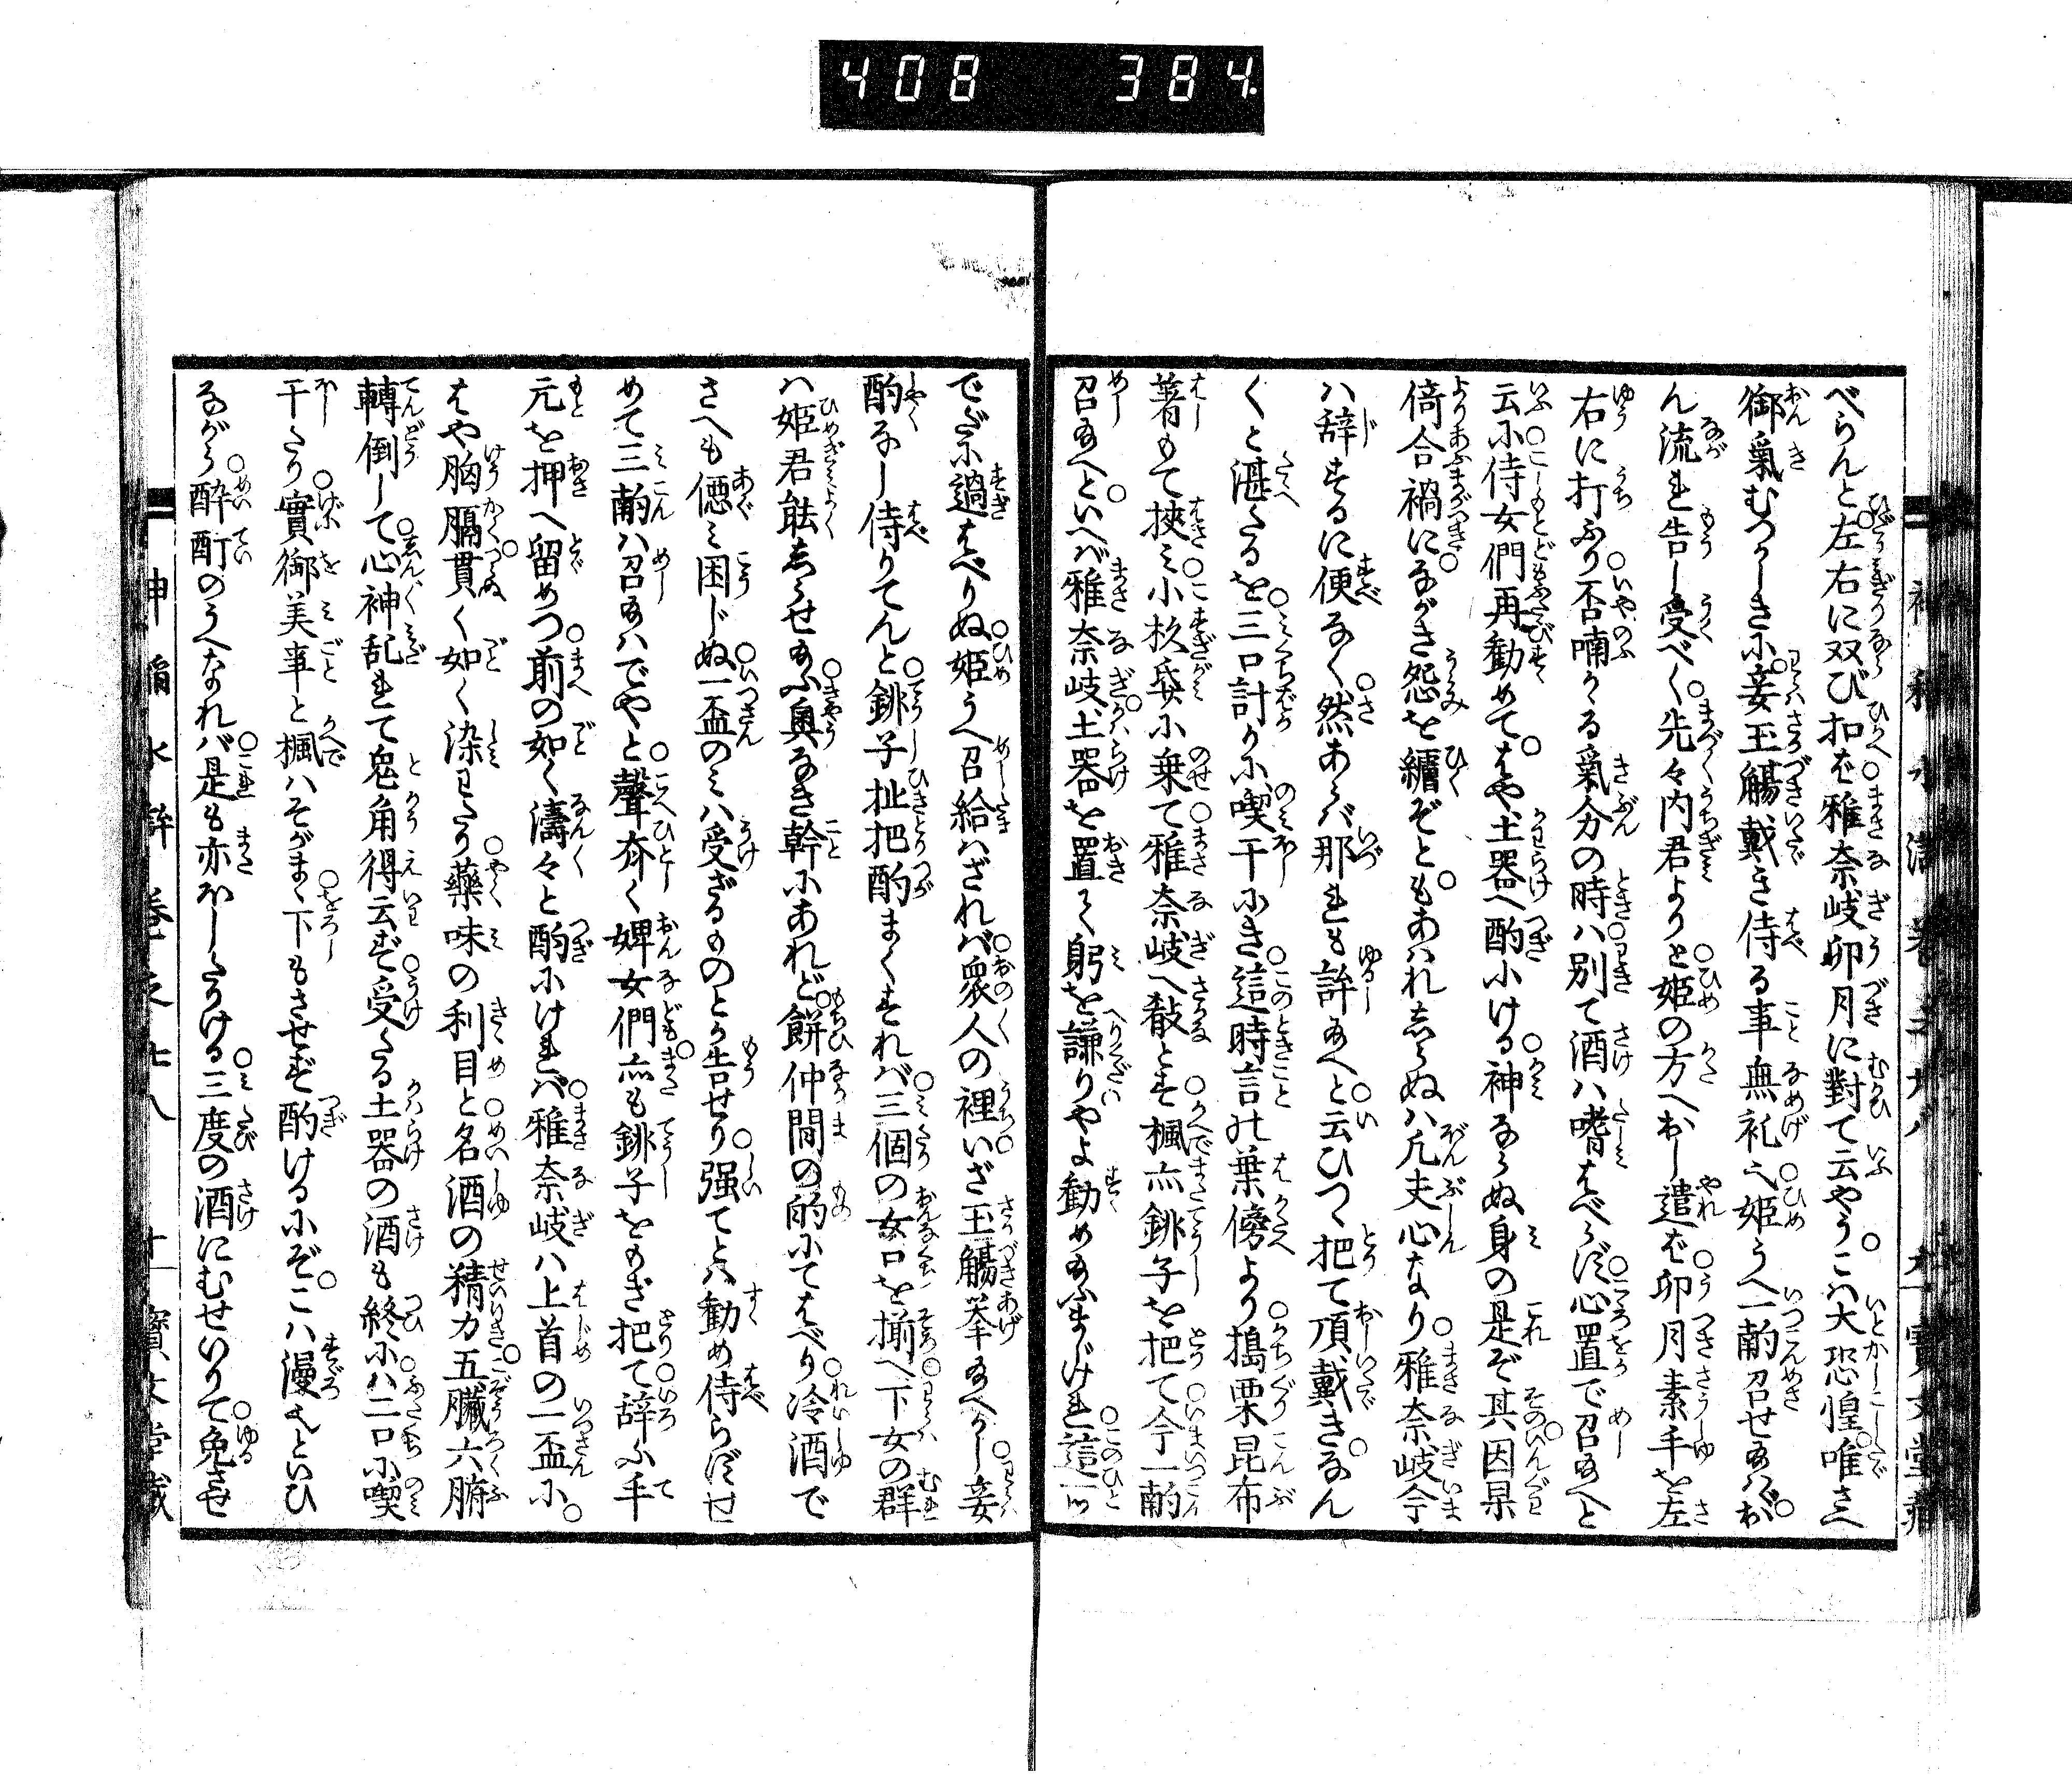 408 384.
べらんと左右に双び扣ば雅奈岐卯月に對て云やうこハ大恐惶唯さへ
御氣むつゝしきに妾玉觴戴き侍る事無礼に姫うへ一酌召せ給へが
ん流れ告し受べく先々内君よりと姫の方へおし遣ば卯月素手を左
右に打ふり否喃かゝる氣分の時ハ別て酒ハ嗜はべらば心置で召給へと
云に侍女們再勧めてはや土器へ酌にける神ならぬ身の是ぞ其因果
倚合禍になき怨を纒ぞともあハれしらぬハ凡夫心なり雅奈岐今
ハ辞するに便なく然あらバ那れも許給へと云ひつゝ把て頂戴きなん
くと湛たるを三口計りに喫干にき這時言の葉傍より搗栗昆布
箸もて挾ミ小杉㒵に乗て雅奈岐へ殽とす楓亦銚子を把て今一酌
召給へといへバ雅奈岐土器を置て躬を謙りやよ勧め給ふまじけれ這一口
でだに過はべりぬ姫うへ召給ハざれバ衆人の裡いざ玉觴挙給へかし妾
酌なし侍りてんと銚子扯把酌まくすれバ三個の女口を揃へ下女の群
ハ姫君能しらせ給ふ奥なき幹にあれど餅仲間の的にてはべり冷酒で
さへも偲ミ困じぬ一盃のミハ受ざるものとか告せり强てとハ勧め侍らばせ
めて三酌ハ召給ハでやと聲夲く婢女們亦も銚子をもぎ把て辞ふ手
元を押へ留めつ前の如く濤々と酌にけれバ雅奈岐ハ上首の一盃に
はや胸膈貫く如く染わたり藥味の利目と名酒の精力五臓六腑
轉倒して心神乱れて兎角得云ず受たる土器の酒も終にハ二口に喫
干たり實御美事と楓ハそがまゝ下もさせず酌けるにぞこハ漫也といひ
ながら酔酊のうへなれバ是も亦ほしたりける三度の酒にむせいりて免させ